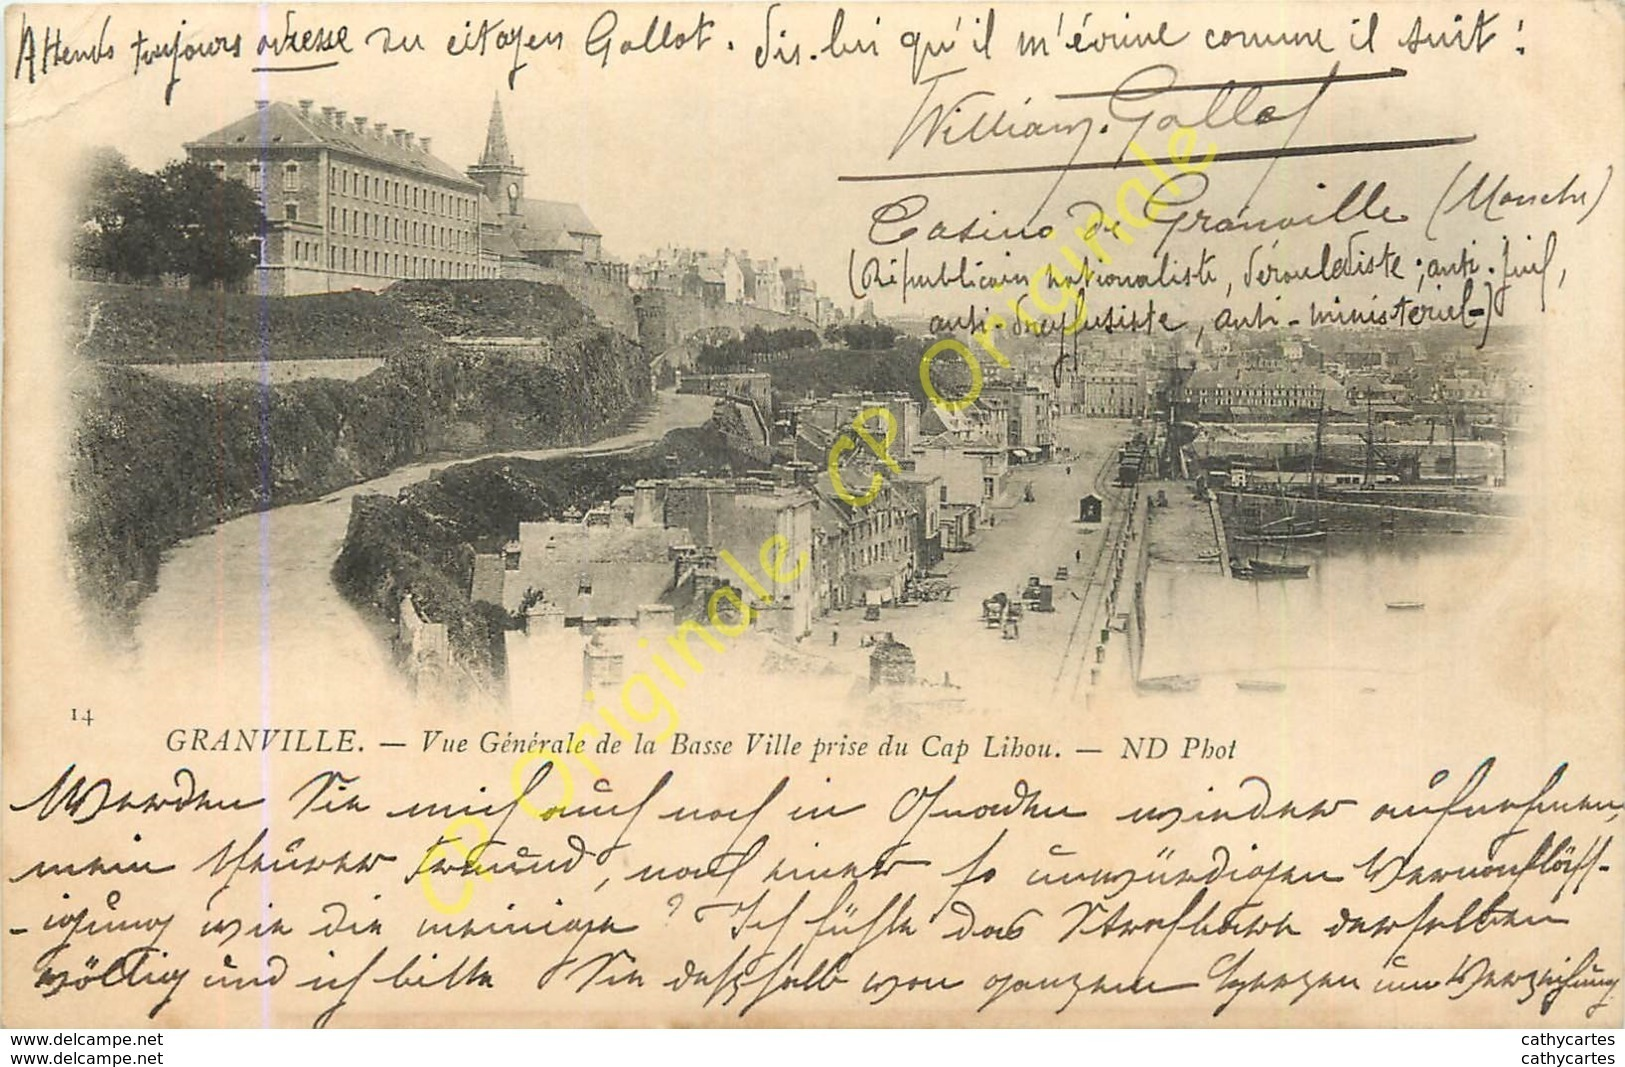 Attends toujours adresse du citoyen Gallot. dis-lui qu'il m'écrive comme il suit :
William-Gallot
Casino de Granville (Manche)
(Républicain nationaliste, déroulédiste ; anti-juif,
anti-dreyfusiste, anti-ministériel-)
14
GRANVILLE. — Vue Générale de la Basse Ville prise du Cap Lihou. — ND Phot
Werden Sie mich auch noch in Gnaden wieder aufnehmen,
mein theurer Freund, nach einer so unwürdigen Vernachläss-
-igung wie die meinige ? Ich fühle das Strafbare derselben
völlig und ich bitte Sie desshalb von ganzem Herzen um Verzeihung
CP Originale CP Originale CP Originale
cathycartes cathycartes
cathycartes cathycartes